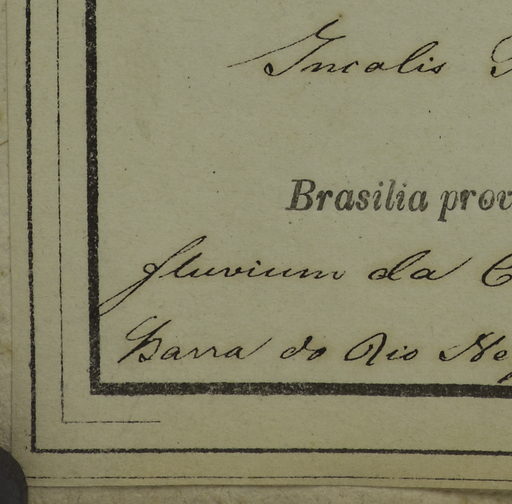 Incolis
Brasilia prov
fluvium da C
Barra do Rio Neg